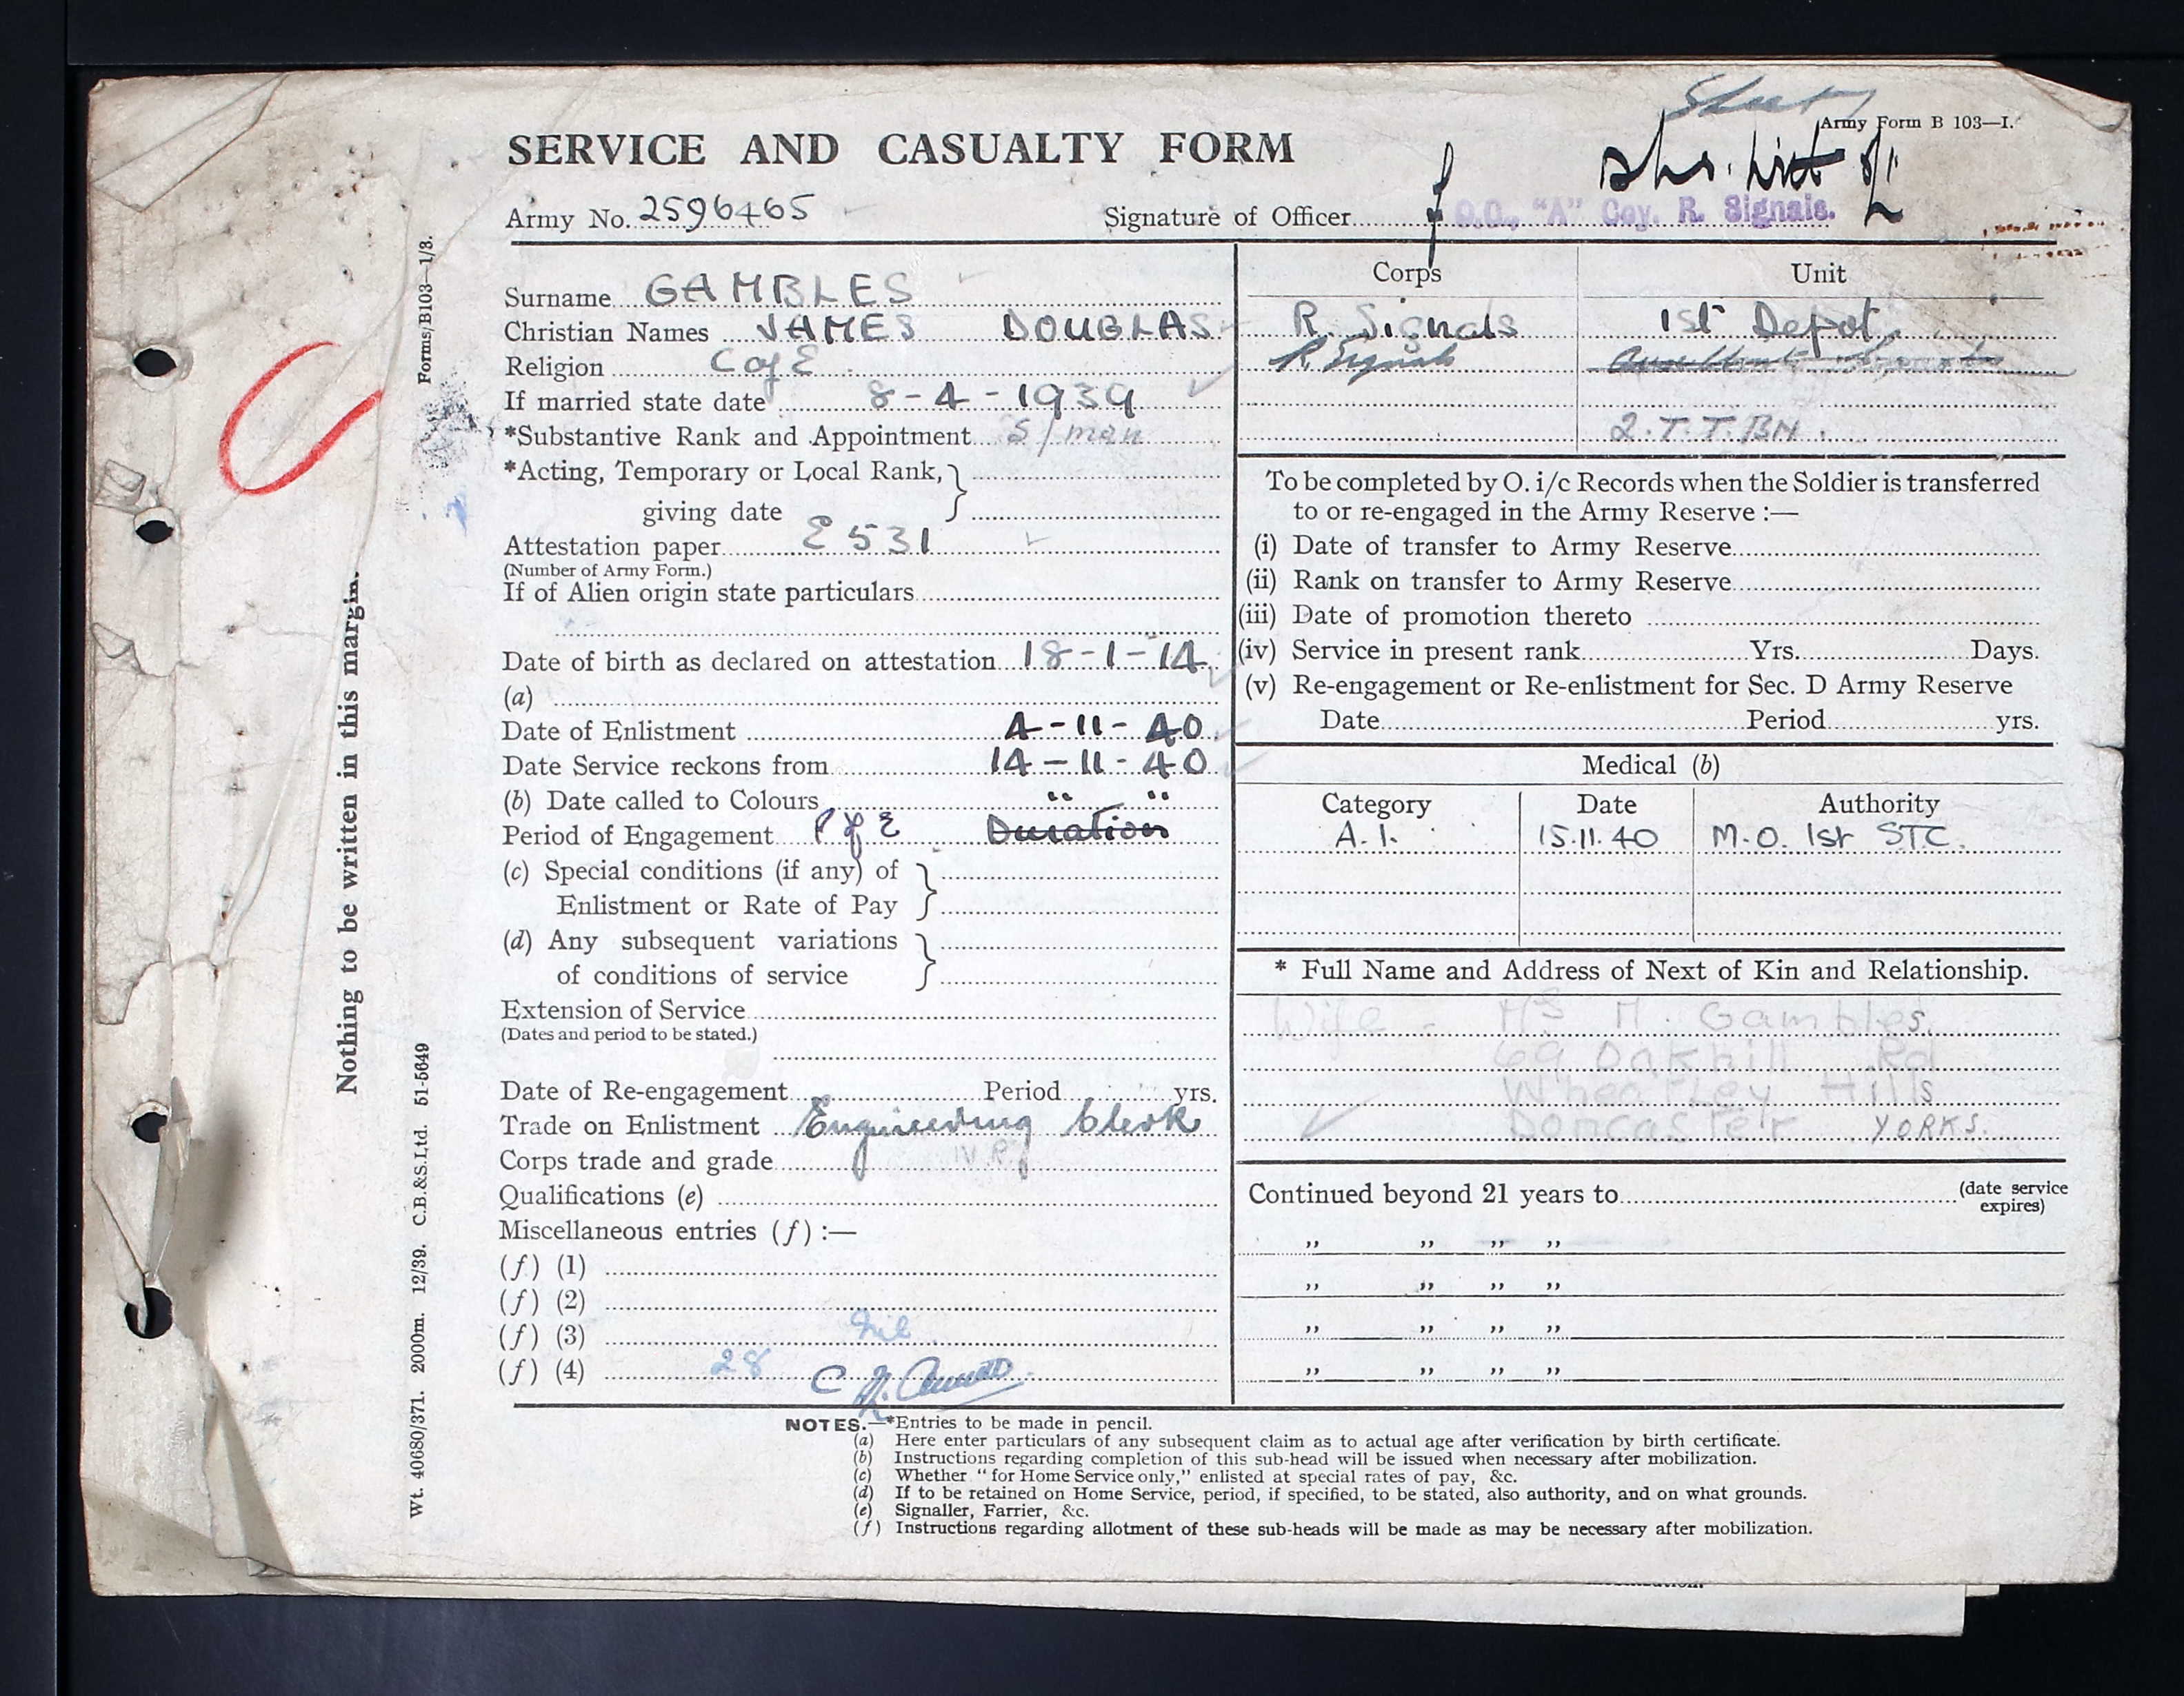 Army Form B 103—I.
SERVICE AND CASUALTY FORM
Army No. 2596465
Signature of Officer
O.C., "A" Coy. R. Signals.
Surname GAMBLES
Christian Names JAMES DOUGLAS
Religion C of E
If married state date 8-4-1939
*Substantive Rank and Appointment S/man
*Acting, Temporary or Local Rank,
giving date
Attestation paper E531
(Number of Army Form.)
If of Alien origin state particulars
Date of birth as declared on attestation 18-1-14
(a)
Date of Enlistment 4-11-40
Date Service reckons from 14-11-40
(b) Date called to Colours " "
Period of Engagement P of E Duration
(c) Special conditions (if any) of
Enlistment or Rate of Pay
(d) Any subsequent variations
of conditions of service
Extension of Service
(Dates and period to be stated.)
Date of Re-engagement Period yrs.
Trade on Enlistment Engineering Clerk
Corps trade and grade
Qualifications (e)
Miscellaneous entries (f) :—
(f) (1)
(f) (2)
(f) (3) Nil
(f) (4) 28
Corps Unit
R. Signals 1st Depot
R Signals
2.T.T.BN.
To be completed by O. i/c Records when the Soldier is transferred
to or re-engaged in the Army Reserve :—
(i) Date of transfer to Army Reserve
(ii) Rank on transfer to Army Reserve
(iii) Date of promotion thereto
(iv) Service in present rank Yrs. Days.
(v) Re-engagement or Re-enlistment for Sec. D Army Reserve
Date Period yrs.
Medical (b)
Category Date Authority
A.1. 15.11.40 M.O. 1st STC.
* Full Name and Address of Next of Kin and Relationship.
Wife - Mrs M. Gambles.
69 Oakhill Rd
Wheatley Hills
Doncaster YORKS.
Continued beyond 21 years to (date service
expires)
" " " "
" " " "
" " " "
" " " "
NOTES.—*Entries to be made in pencil.
(a) Here enter particulars of any subsequent claim as to actual age after verification by birth certificate.
(b) Instructions regarding completion of this sub-head will be issued when necessary after mobilization.
(c) Whether "for Home Service only," enlisted at special rates of pay, &c.
(d) If to be retained on Home Service, period, if specified, to be stated, also authority, and on what grounds.
(e) Signaller, Farrier, &c.
(f) Instructions regarding allotment of these sub-heads will be made as may be necessary after mobilization.
Nothing to be written in this margin.
Forms/B103—1/3.
Wt. 40680/371. 2000m. 12/39. C.B.&S.Ltd. 51-5649